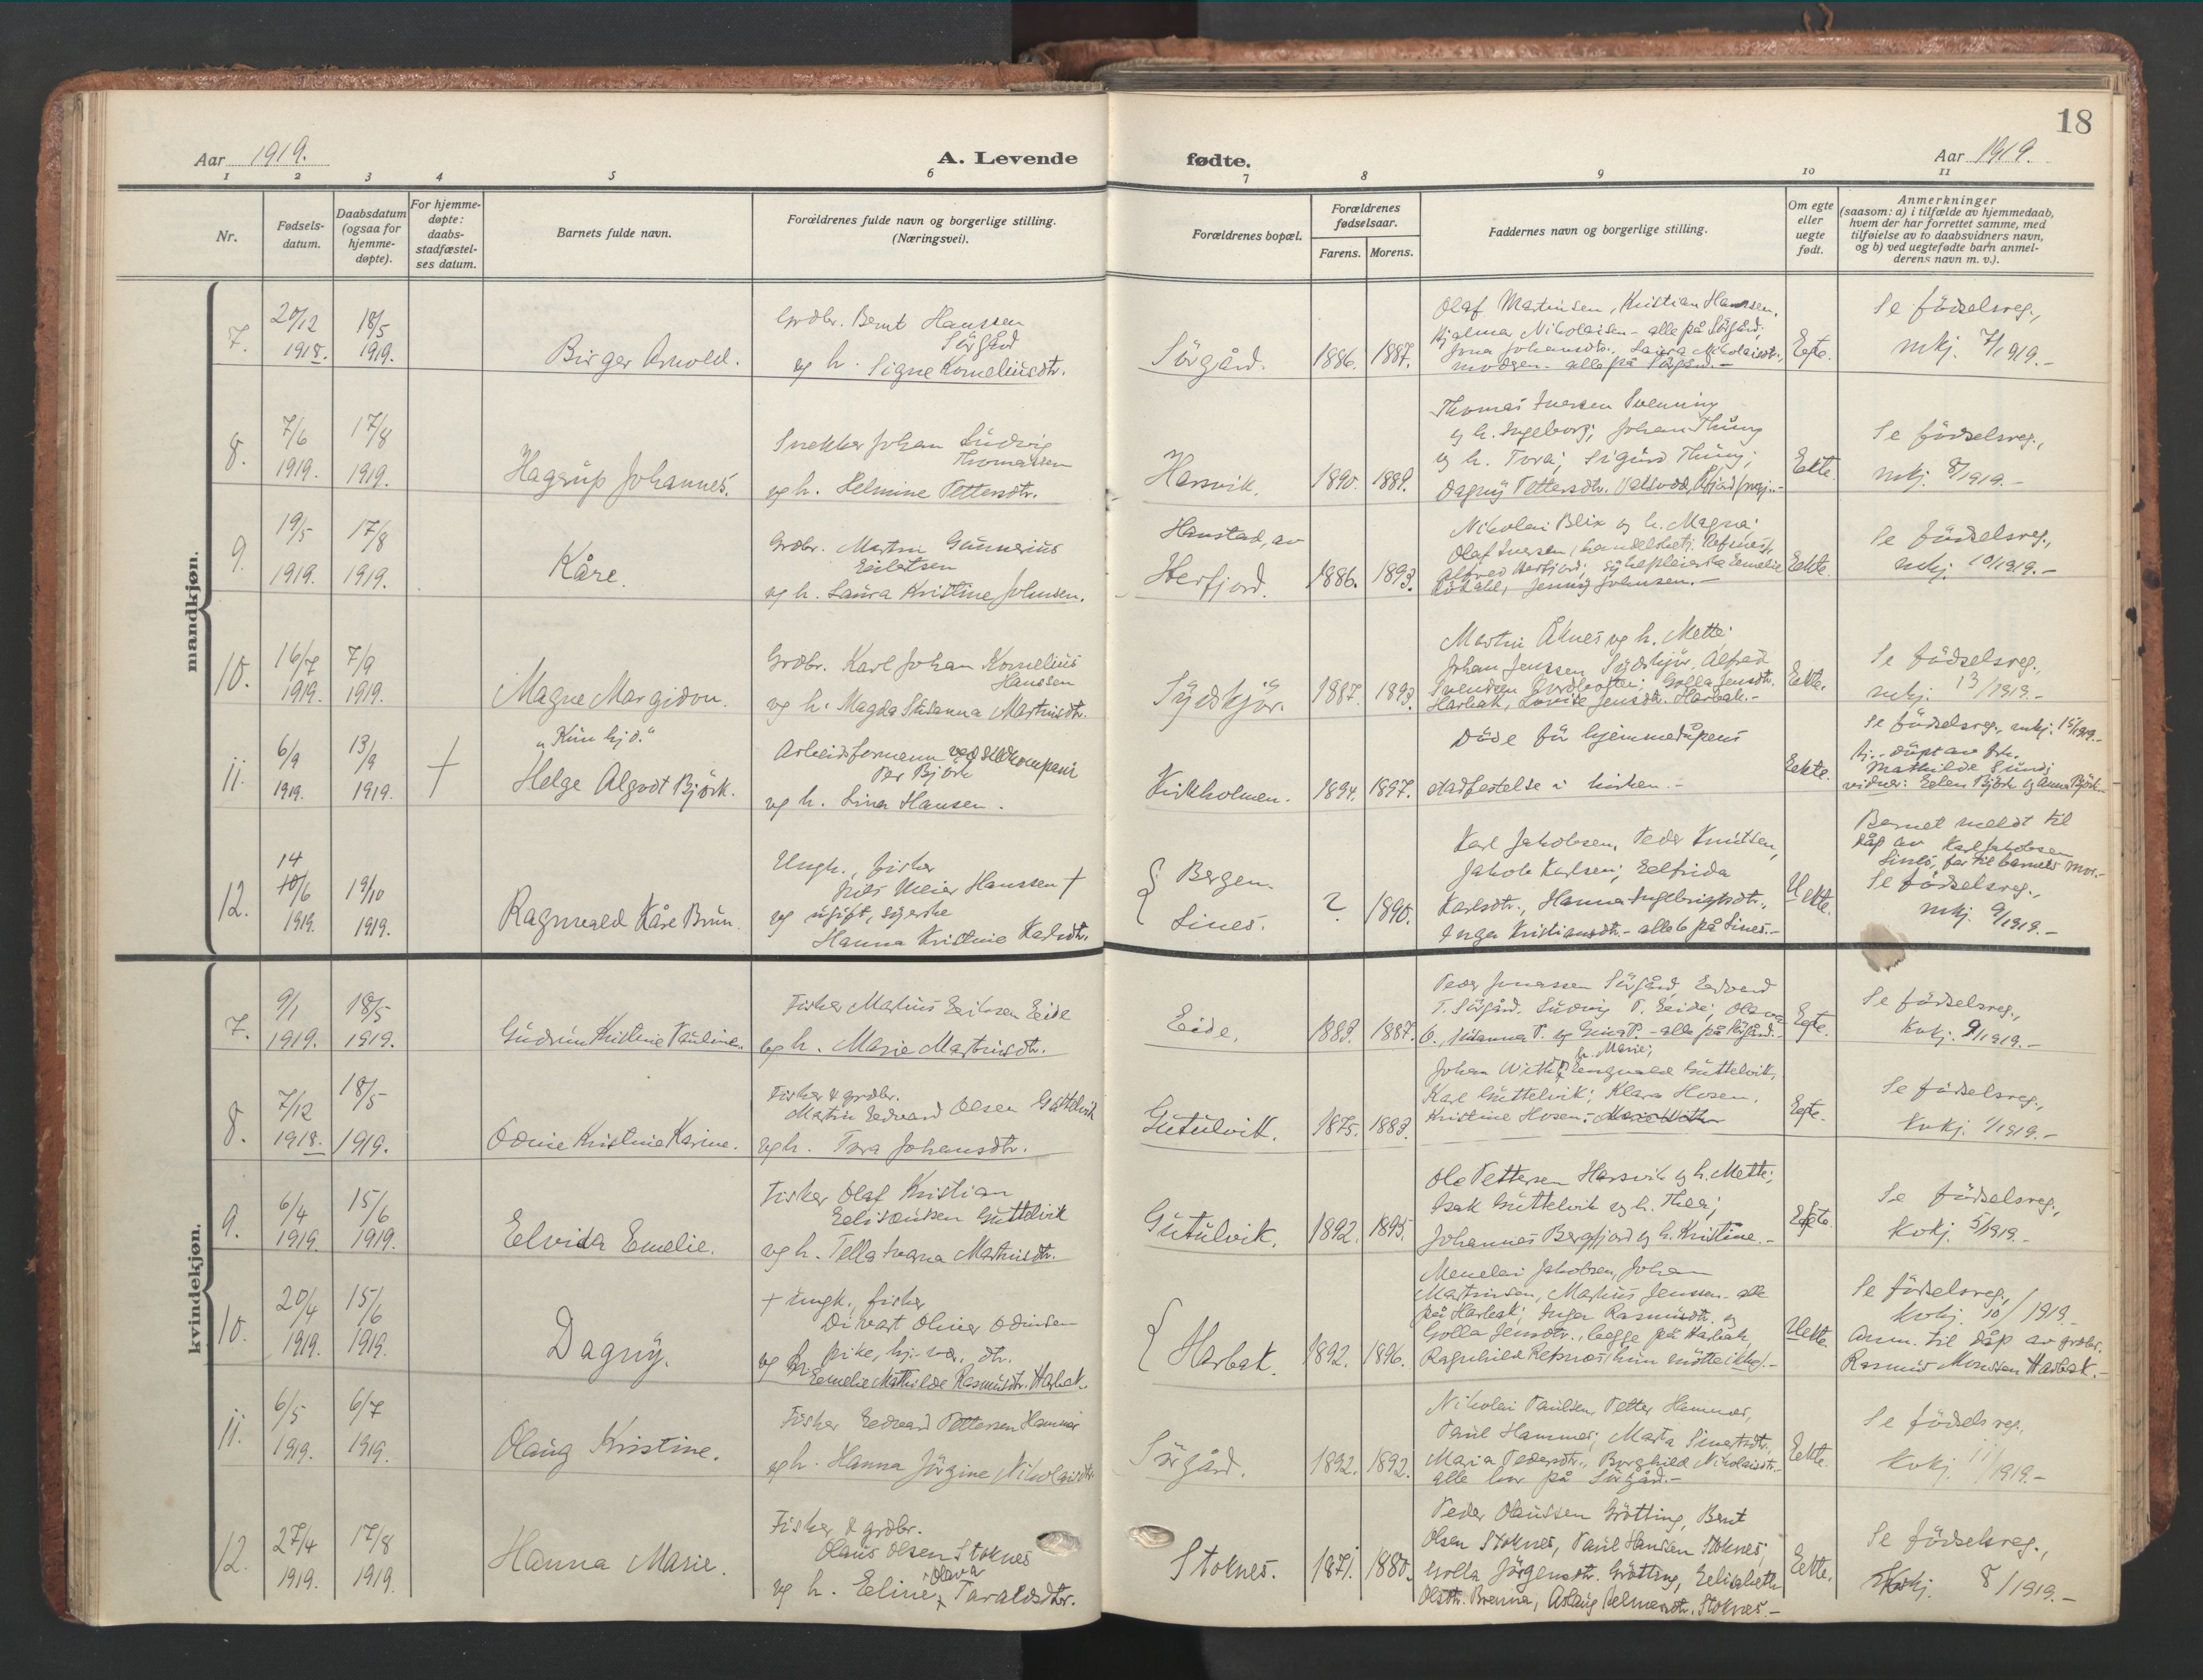 18
Aar 1919.
A. Levende
fødte.
Aar 1919.
1 2 3 4 5 6 7 8 9 10 11
Nr.
Fødsels-
datum.
Daabsdatum
(ogsaa for
hjemme-
døpte).
For hjemme-
døpte:
daabs-
stadfæstel-
ses datum.
Barnets fulde navn.
Forældrenes fulde navn og borgerlige stilling.
(Næringsvei).
Forældrenes bopæl.
Forældrenes
fødselsaar.
Farens. Morens.
Faddernes navn og borgerlige stilling.
Om egte
eller
uegte
født.
Anmerkninger
(saasom: a) i tilfælde av hjemmedaab,
hvem der har forrettet samme, med
tilføielse av to daabsvidners navn,
og b) ved uegtefødte barn anmel-
derens navn m. v.).
mandkjøn.
7.
20/12
1918.
18/5
1919.
Birger Arnold.
Grdbr. Bernt Hanssen
Sörgård
og h. Signe Korneliusdtr.
Sörgård.
1886. 1887.
Olaf Martinsen, Kristian Hansen,
Hjalmar Nikolaisen - alle på Sörgård;
Jona Johansdtr., Laura Nikolaisdtr.,
moderen - alle på Sörgård. -
Egte.
Se födselsreg.,
mkj. 7/1919. -
8.
7/6
1919.
17/8
1919.
Hagrup Johannes.
Snekker Johan Ludvig
Thomassen
og h. Helmine Pettersdtr.
Harsvik.
1890. 1889.
Thomas Iversen Svenning
og h. Ingeborg; Johan Thung
og h. Tora; Sigurd Thung;
Dagny Pettersdtr.
Eekte.
Se födselsreg.,
mkj. 8/1919. -
9.
19/5
1919.
17/8
1919.
Kåre.
Grdbr. Martin Gunnerius
Eilertsen
og h. Laura Kristine Johnsen.
Hanstad, av
Herfjord.
1886. 1893.
Nikolai Blix og h. Magna;
Olaf Iversen, handelsbetj. Refsnes,
Alfred Herfjord; sykepleierske Emelie
Jenny Johnsen. -
Eekte.
Se födselsreg.,
mkj. 10/1919. -
10.
16/7
1919.
7/9
1919.
Magne Margidon.
Grdbr. Karl Johan Kornelius
Hanssen
og h. Magda Susanna Martinsdtr.
Sydskjör.
1887. 1893.
Martin Åknes og h. Mette;
Johan Jenssen Sydskjör, Alfred
Svendsen; Golla Jensdtr.
Harbak, Lovise Jensdtr. Harbak. -
Eekte.
Se födselsreg.,
mkj. 13/1919. -
11.
6/9
1919.
13/9
1919.
+
"Kun hj.d."
Helge Algodt Björk.
Arbeidsformann ved
Per Björk
og h. Lina Hansen.
Kirkholmen.
1894. 1897.
Döde för hjemmedåpens
stadfestelse i kirken. -
Eekte.
Se födselsreg., mkj. 15/1919. -
hj. döpt av frk.
Mathilde Sund;
vidner: Eelen Björk og Anna Björk -
12.
14
10/6
1919.
19/10
1919.
Ragnvald Kåre Brun.
Ungk., fisker
Nils Meier Hanssen +
og ugift, syerske
Hanna Kristine Karlsdtr.
Bergen.
Lines.
? 1890.
Karl Jakobsen, Peder Knudsen,
Jakob Karlsen; Eelfrida
Karlsdtr., Hanna Ingebrigtsdtr.,
Inga Kristiansdtr. - alle 6 på Lines. -
Uekte.
Barnet meldt til
dåp av Karl Jakobsen
Lines, far til barnets mor. -
Se födselsreg.,
mkj. 9/1919. -
kvindekjøn.
7.
9/1
1919.
18/5
1919.
Gudrun Kristine Pauline.
Fisker Marius Eriksen Eide
og h. Marie Martinsdtr.
Eide.
1883. 1887.
Peder Jonassen Sörgård, Eedvard
T. Sörgård. Ludvig P. Eide; Olava
O., Susanna P. og Gina P. - alle på Sörgård. -
Egte.
Se födselsreg.,
kvkj. 9/1919. -
8.
7/12
1918.
18/5
1919.
Odnie Kristine Karine.
Fisker & grdbr.
Martin Eedvard Olsen Guttelvik
og h. Tora Johansdtr.
Gutulvik.
1875. 1883.
h. Marie;
Johan With, Lengvald Guttelvik,
Karl Guttelvik; Klara Hosen,
Kristine Hosen;
Egte.
Se födselsreg.,
kvkj. 1/1919. -
9.
6/4
1919.
15/6
1919.
Elvida Emelie.
Fisker Olaf Kristian
Eeliseussen Guttelvik
og h. Tella Ivara Martinsdtr.
Gutulvik.
1892. 1895.
Ole Pettersen Harsvik og h. Mette;
Isak Guttelvik og h. Thea;
Johannes Bergfjord og h. Kristine. -
Eekte.
Se födselsreg.,
kvkj. 5/1919. -
10.
20/4
1919.
15/6
1919.
Dagny.
+ ungk., fisker
Divart Oliver Odinsen
og pike, hj. vær. dtr.
Eemelie Mathilde Rasmusdtr. Harbak.
Harbak.
1892. 1896.
Menelai Jakobsen, Johan
Martinsen, Marius Jenssen - alle
på Harbak; Inger Rasmusdtr. og
Golla Jensdtr., begge på Harbak,
Ragnhild Refsnes (hun mötte ikke). -
Uekte.
Se födselsreg.,
kvkj. 10/1919.
Anm. til dåp av grdbr.
Rasmus Monssen Harbak. -
11.
6/5
1919.
6/7
1919.
Olaug Kristine.
Fisker Eedvard Pettersen Hammer
og h. Hanna Jörgine Nikolaisdtr.
Sörgård.
1892. 1892.
Nikolai Paulsen, Petter Hammer,
Paul Hammer; Marta Sivertsdtr.,
Maria Pedersdtr., Borghild Nikolaisdtr. -
alle bor på Sörgård. -
Eekte.
Se födselsreg.,
kvkj. 11/1919. -
12.
27/4
1919.
17/8
1919.
Hanna Marie.
Fisker & grdbr.
Olaus Olsen Stoknes
Olava
og h. Eeline Taraldsdtr.
Stoknes.
1871. 1880.
Peder Olaussen Grötting, Bernt
Olsen Stoknes, Paul Hansen Stoknes;
Golla Jörgensdtr. Grötting, Eelisabeth
Olsdtr. Brenna, Aslaug Helmersdtr. Stoknes. -
Eekte.
Se födselsreg.,
kvkj. 8/1919. -